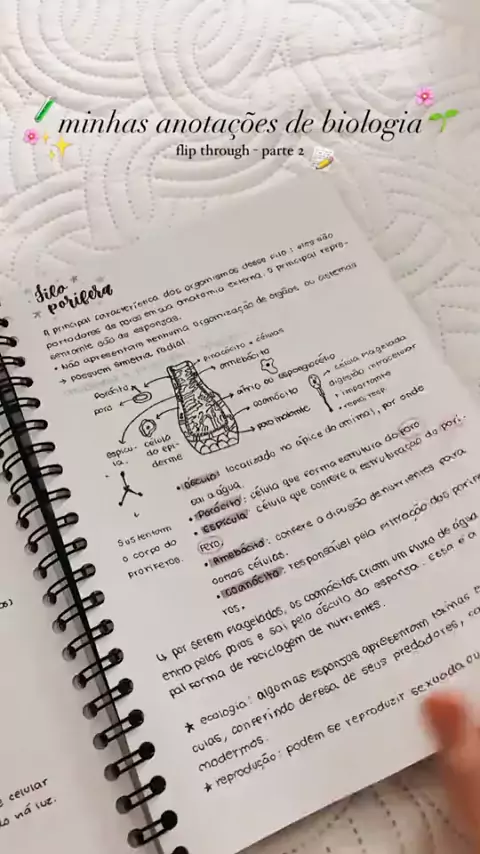 minhas anotações de biologia
flip through - parte 2
Filo
porifera
A principal característica dos organismos desse filo: eles são
portadores de poros em sua anatomia externa. O principal repre-
sentante são as esponjas.
• Não apresentam nenhuma organização de órgãos ou sistemas
→ possuem simetria radial.
Porócito
poro
espícu-
la.
célula
da epi-
derme
Pinacócito + células
amebócito
átrio ou espongiocélio
coanócito
poro inalante
→ célula flagelada
digestão intracelular
+ importante
Sustentam
o corpo do
Poríferos.
• Ósculo: localizado no ápice do animal, por onde
sai a água.
• Porócito: célula que forma estrutura do poro
• Espícula: célula que confere a estruturação do porí-
fero.
• Amebócito: confere a difusão de nutrientes para
outras células.
• Coanócito: responsável pela filtração dos porífe
ros.
↳ por serem flagelados, os coanócitos criam um fluxo de água
entra pelos poros e sai pelo ósculo da esponja. Essa é a
pal forma de reciclagem de nutrientes.
★ ecologia: algumas esponjas apresentam toxinas e
culas, conferindo defesa de seus predadores, co
madormos.
★ reprodução: podem se reproduzir sexuada ou
e celular
na luz.